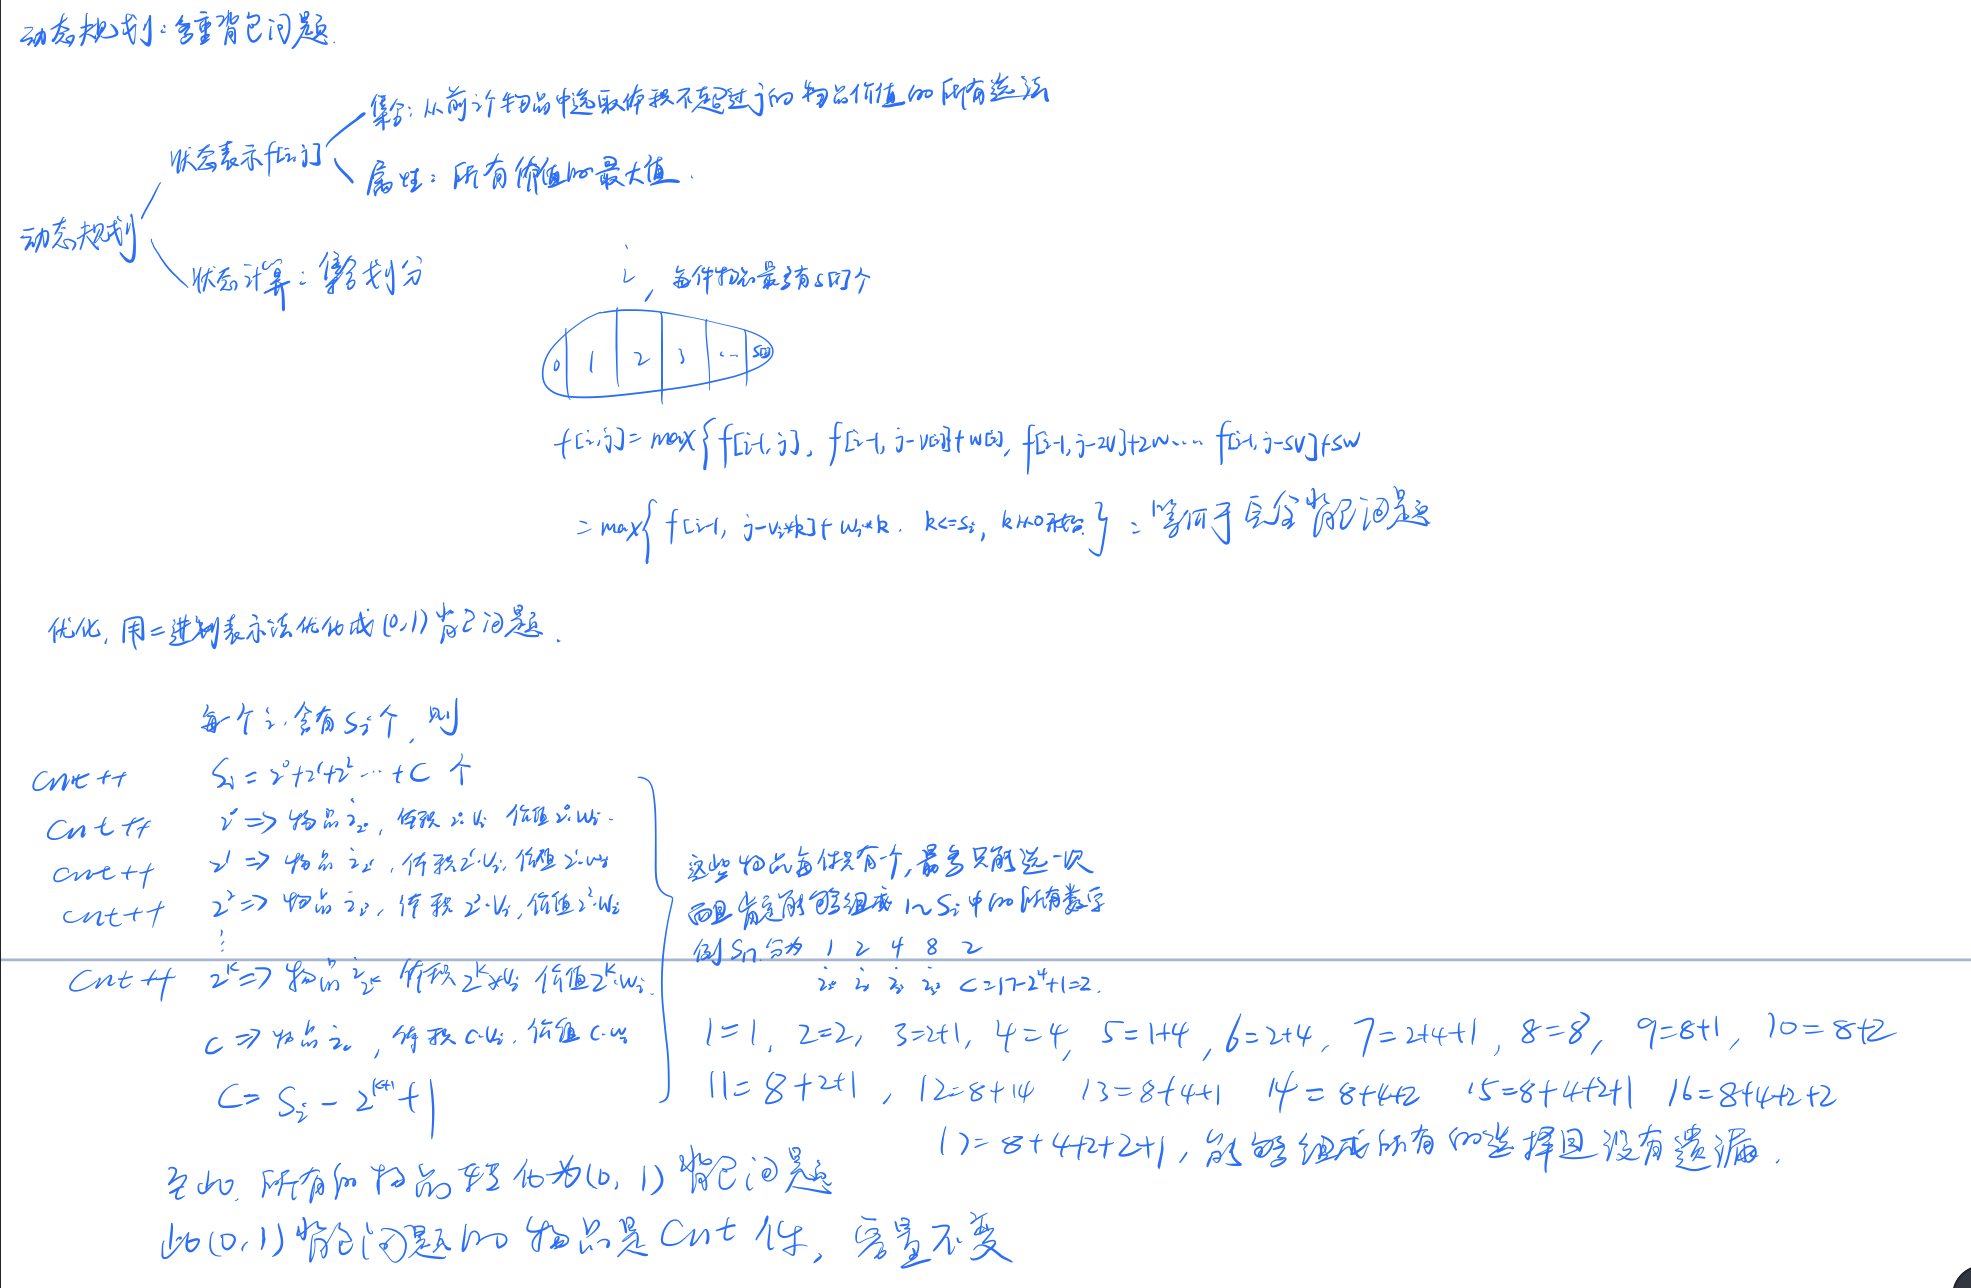 动态规划:多重背包问题.
集合:从前i个物品中选取体积不超过j的物品价值的所有选法
状态表示f[i,j]
属性:所有价值的最大值.
动态规划
状态计算:集合划分
i
i, 每件物品最多有s[i]个
0 1 2 3 ... s[i]
f[i,j]=max{f[i-1,j], f[i-1,j-v[i]]+w[i], f[i-1,j-2v]+2w.... f[i-1,j-sv]+sw
=max{f[i-1, j-vi*k]+wi*k. k<=si, k从0开始}=等价于完全背包问题
优化,用二进制表示法优化成(0,1)背包问题.
每个i.含有si个,则
cnt++ Si=2^0+2^1+2^2...+C 个
cnt++ 2^0=>物品i2^0, 体积2^0·vi 价值2^0·wi.
cnt++ 2^1=>物品i2^1, 体积2^1·vi, 价值2^1·wi
cnt++ 2^2=>物品i2^2, 体积2^2·vi, 价值2^2·wi
⋮
cnt++ 2^k=>物品i2^k 体积2^k*vi 价值2^k·wi.
C=>物品ic, 体积C·vi. 价值C·wi
C=Si-2^(k+1)+1
这些物品每件只有一个,最多只能选一次
而且肯定能够组成1~Si中的所有数字
例S17.分为 1 2 4 8 2
i0 i1 i2 i3 C=17-2^4+1=2.
1=1, 2=2, 3=2+1, 4=4, 5=1+4, 6=2+4, 7=2+4+1, 8=8, 9=8+1, 10=8+2
11=8+2+1, 12=8+14 13=8+4+1 14=8+4+2 15=8+4+2+1 16=8+4+2+2
17=8+4+2+2+1, 能够组成所有的选择且没有遗漏.
至此.所有的物品转化为(0,1)背包问题
此(0,1)背包问题的物品是Cnt件,容量不变